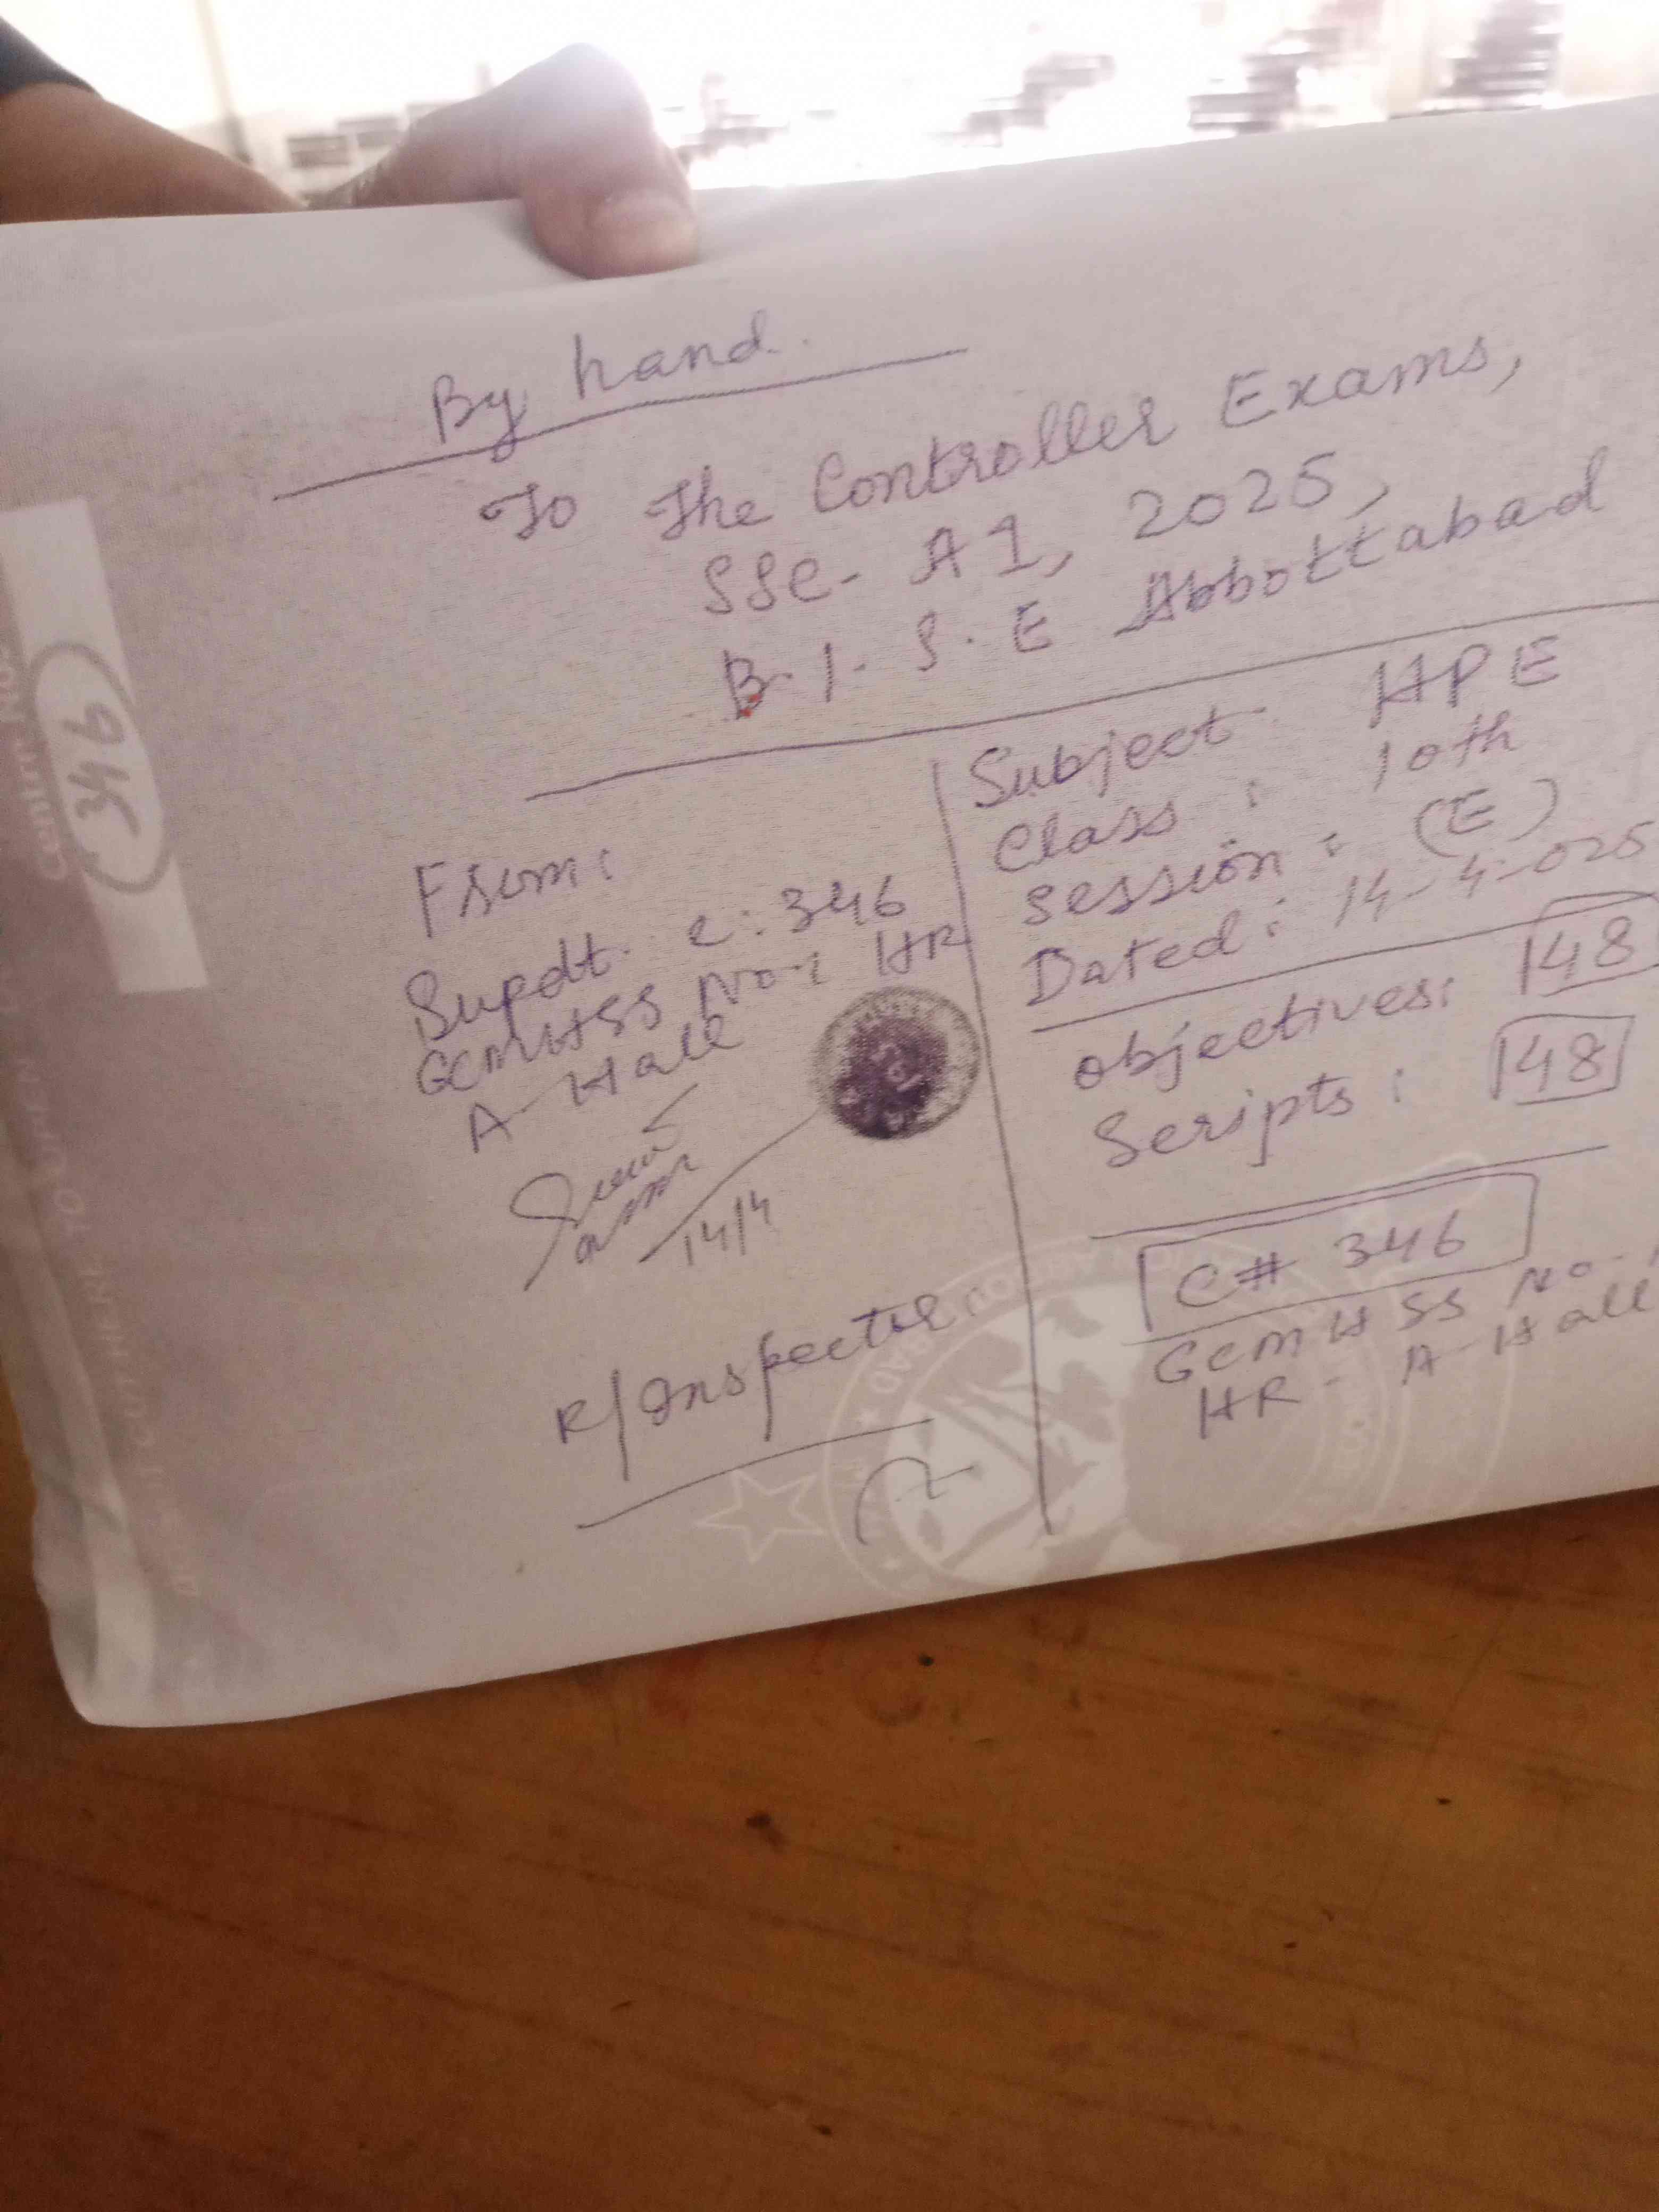 By hand.
To The Controller Exams,
SSC- A1, 2025,
B.I.S.E Abbottabad
CENTRE NO:
346
From:
Supdt. C: 346
GCMHSS No.1 HR
A-Hall
14/4
R/Inspector:
Subject: HPE
Class: 10th
Session: (E)
Dated: 14-4-025
Objectives: 148
Scripts: 148
C# 346
GCMHSS No.
HR- A-Hall